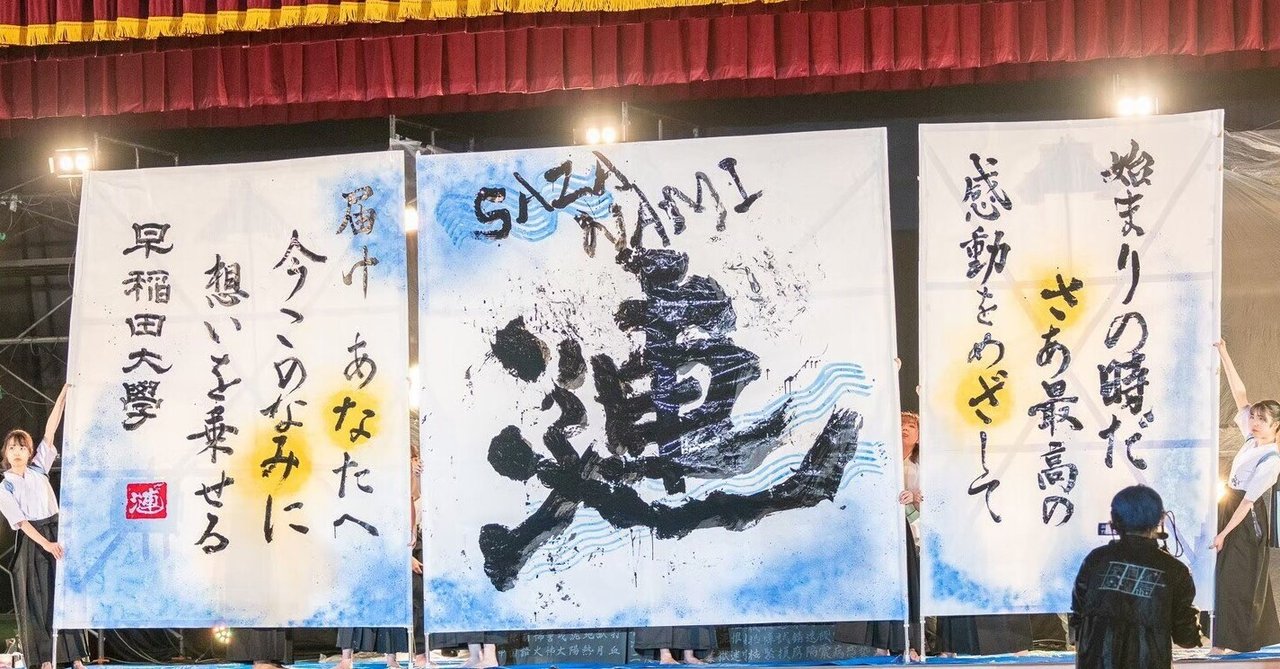 始まりの時だ
さあ最高の
感動をめざして
SAZA
NAMI
漣
届け あなたへ
今このなみに
想いを乗せる
早稲田大學
漣